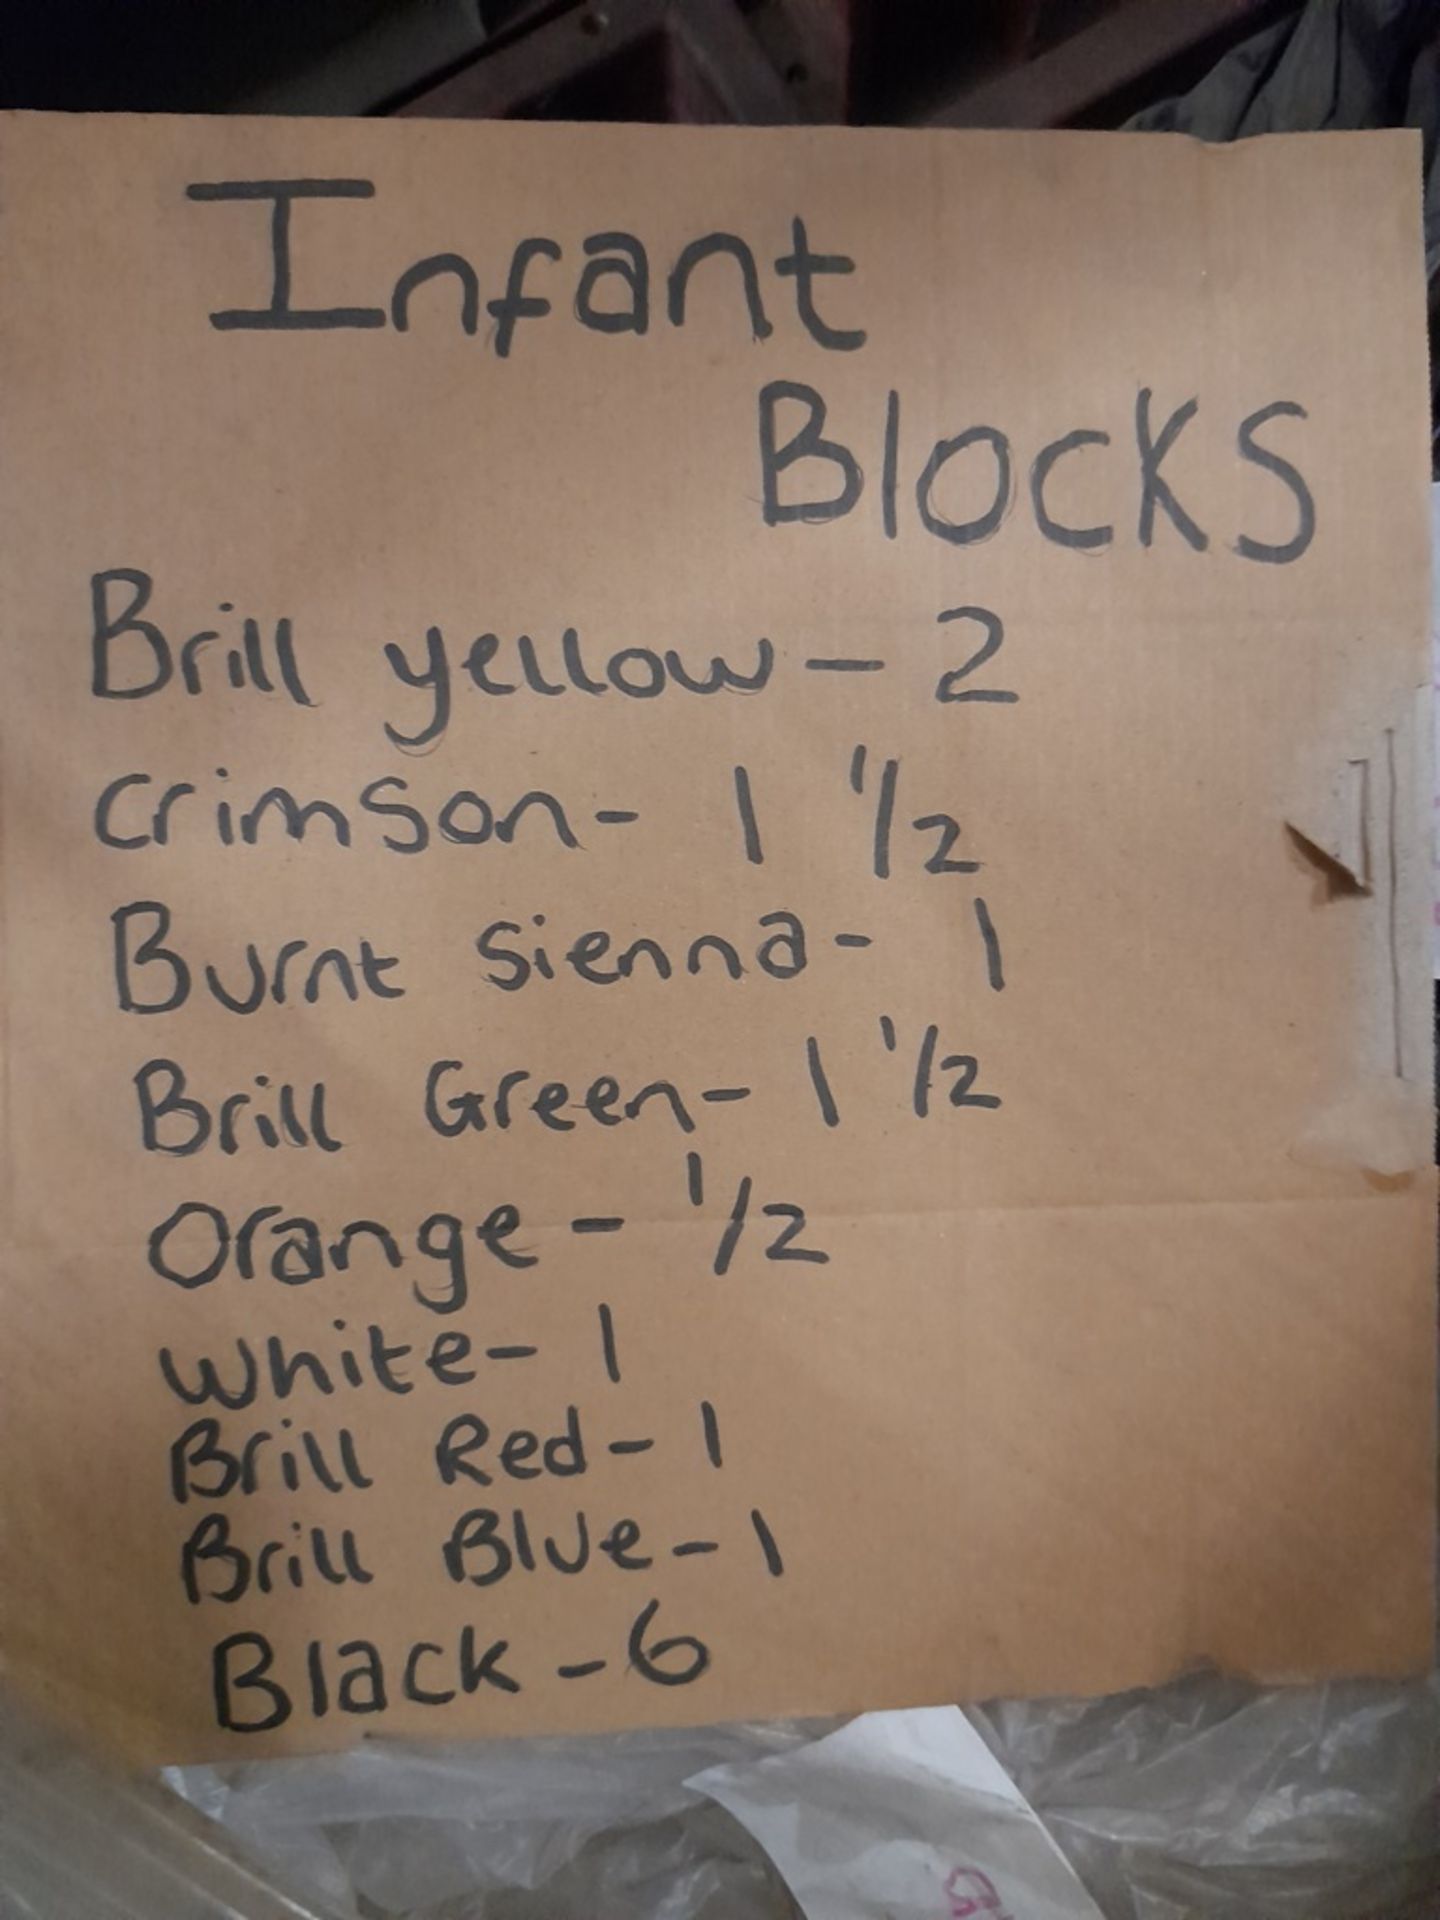 Infant
Blocks
Brill yellow - 2
Crimson - 1 1/2
Burnt Sienna - 1
Brill Green - 1 1/2
Orange - 1/2
White - 1
Brill Red - 1
Brill Blue - 1
Black - 6